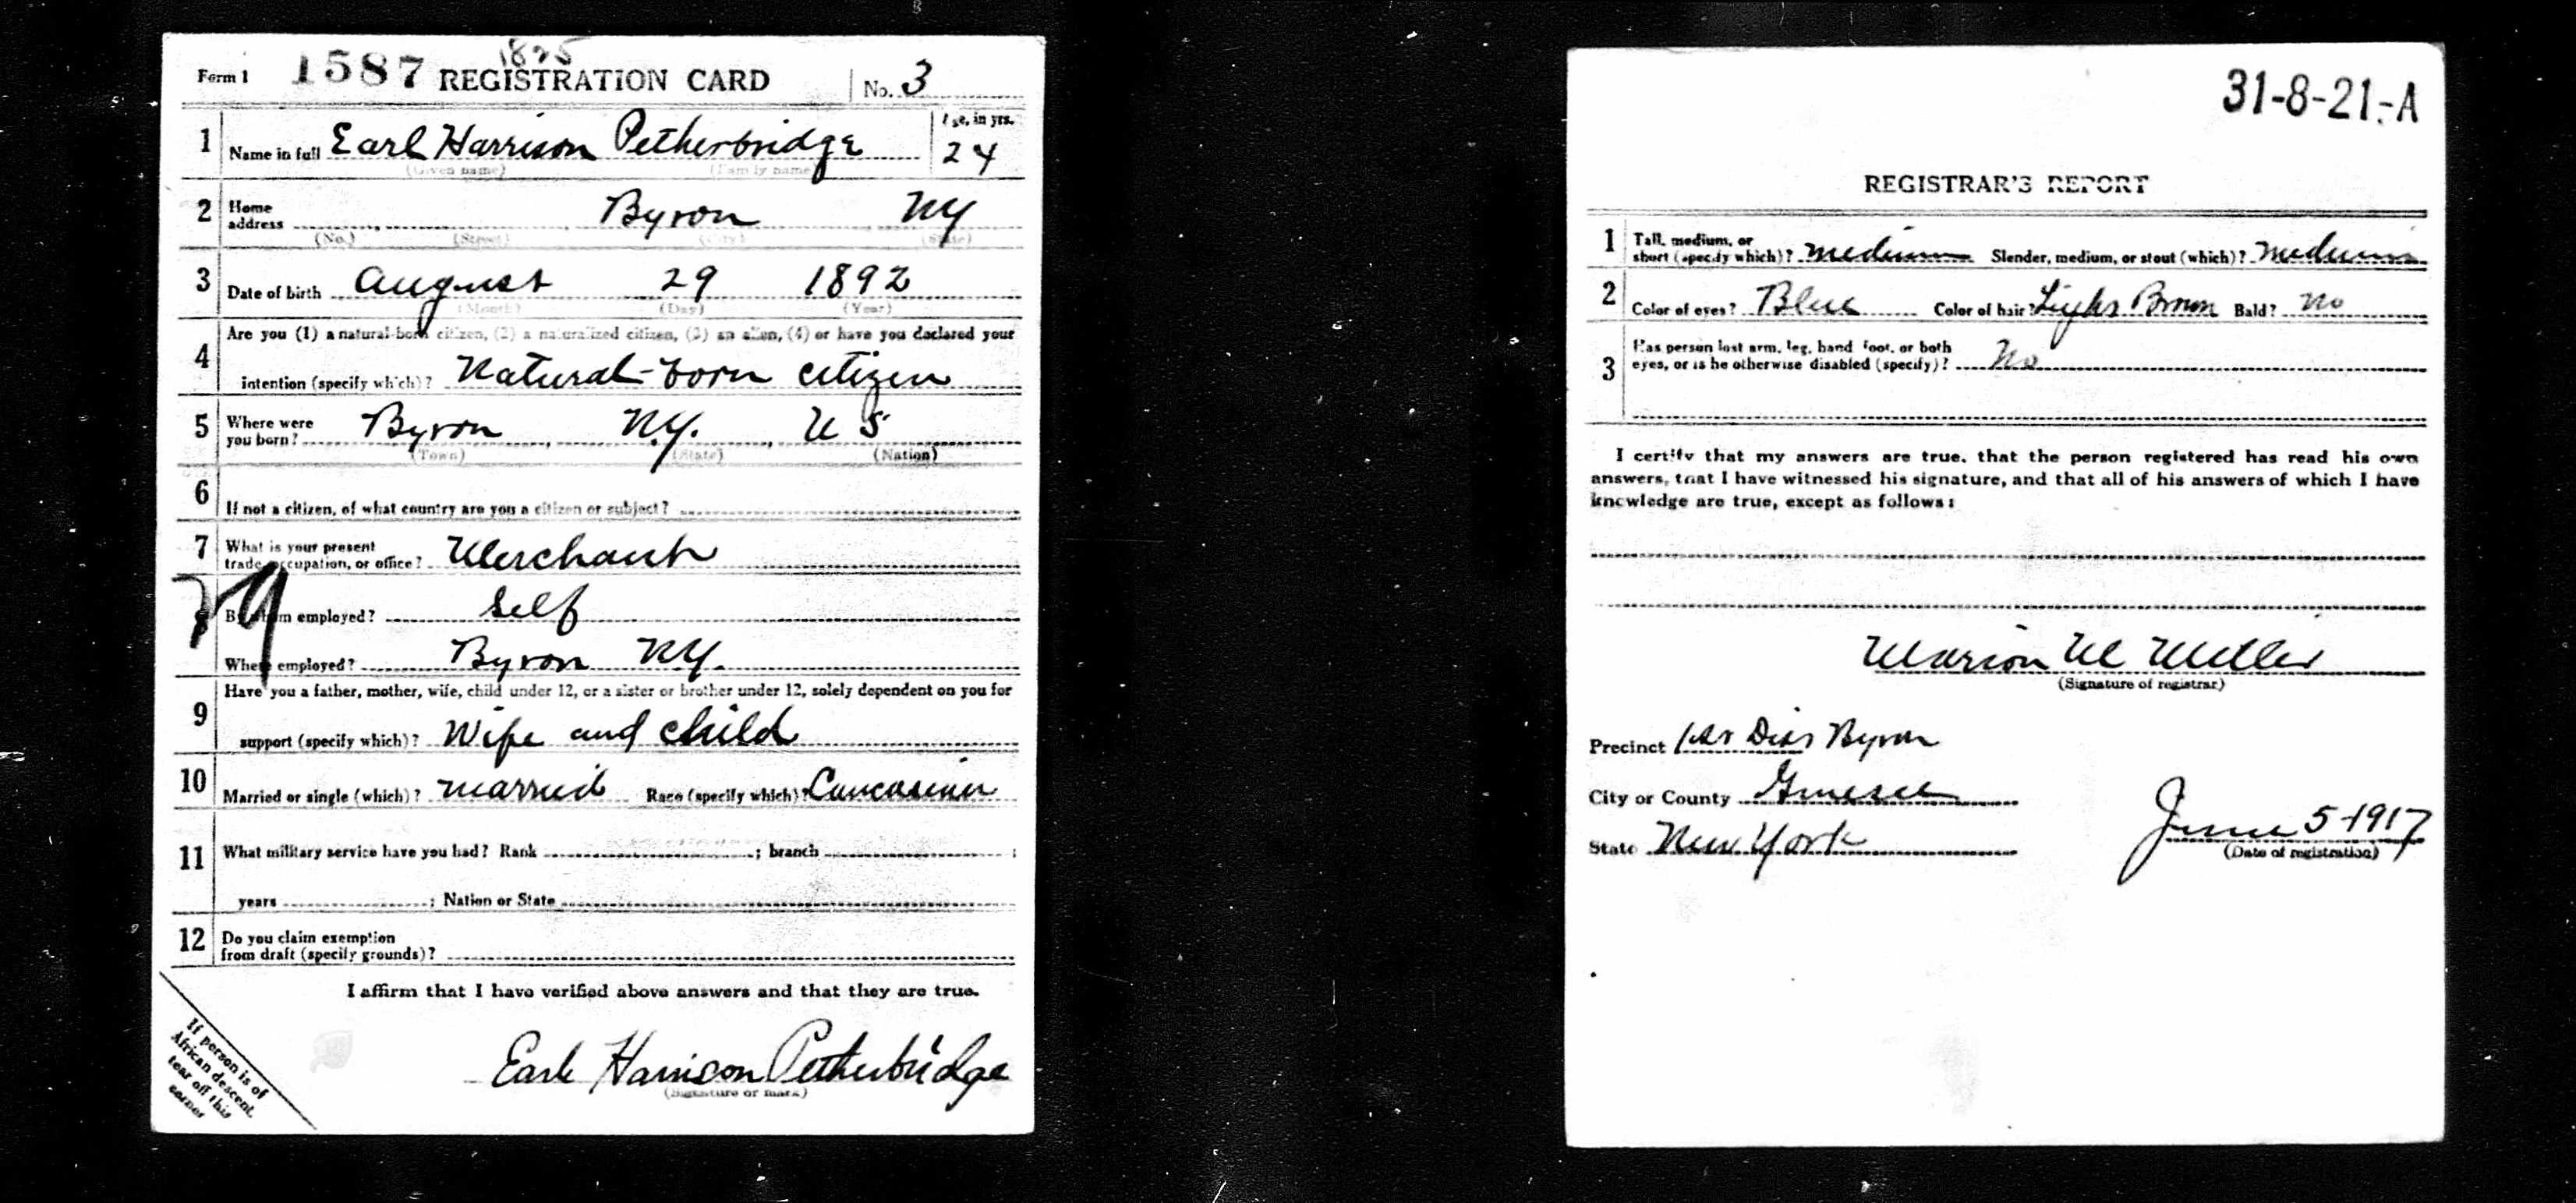 1825
Form 1 1587 REGISTRATION CARD No. 3
1 Name in full Earl Harrison Petherbridge Age, in yrs. 24
(Given name) (Family name)
2 Home address Byron NY
(No.) (Street) (City) (State)
3 Date of birth August 29 1892
(Month) (Day) (Year)
4 Are you (1) a natural-born citizen, (2) a naturalized citizen, (3) an alen, (4) or have you declared your
intention (specify which)? Natural-born citizen
5 Where were you born? Byron N.Y. U S
(Town) (State) (Nation)
6 If not a citizen, of what country are you a citizen or subject?
7 What is your present trade, occupation, or office? Merchant
8 By whom employed? Self
Where employed? Byron N.Y.
9 Have you a father, mother, wife, child under 12, or a sister or brother under 12, solely dependent on you for
support (specify which)? Wife and child
10 Married or single (which)? married Race (specify which)? Caucasian
11 What military service have you had? Rank ; branch ;
years ; Nation or State
12 Do you claim exemption
from draft (specify grounds)?
I affirm that I have verified above answers and that they are true.
Earl Harrison Petherbridge
(Signature or mark)
If person is of
African descent,
tear off this
corner
31-8-21-A
REGISTRAR'S REPORT
1 Tall, medium, or
short (specify which)? medium Slender, medium, or stout (which)? medium
2 Color of eyes? Blue Color of hair? Light Brown Bald? No
3 Has person lost arm, leg, hand, foot, or both
eyes, or is he otherwise disabled (specify)? No
I certify that my answers are true, that the person registered has read his own
answers, that I have witnessed his signature, and that all of his answers of which I have
knowledge are true, except as follows:
Marion M Miller
(Signature of registrar)
Precinct 1st Dist Byron
City or County Genesee
State New York
June 5-1917
(Date of registration)